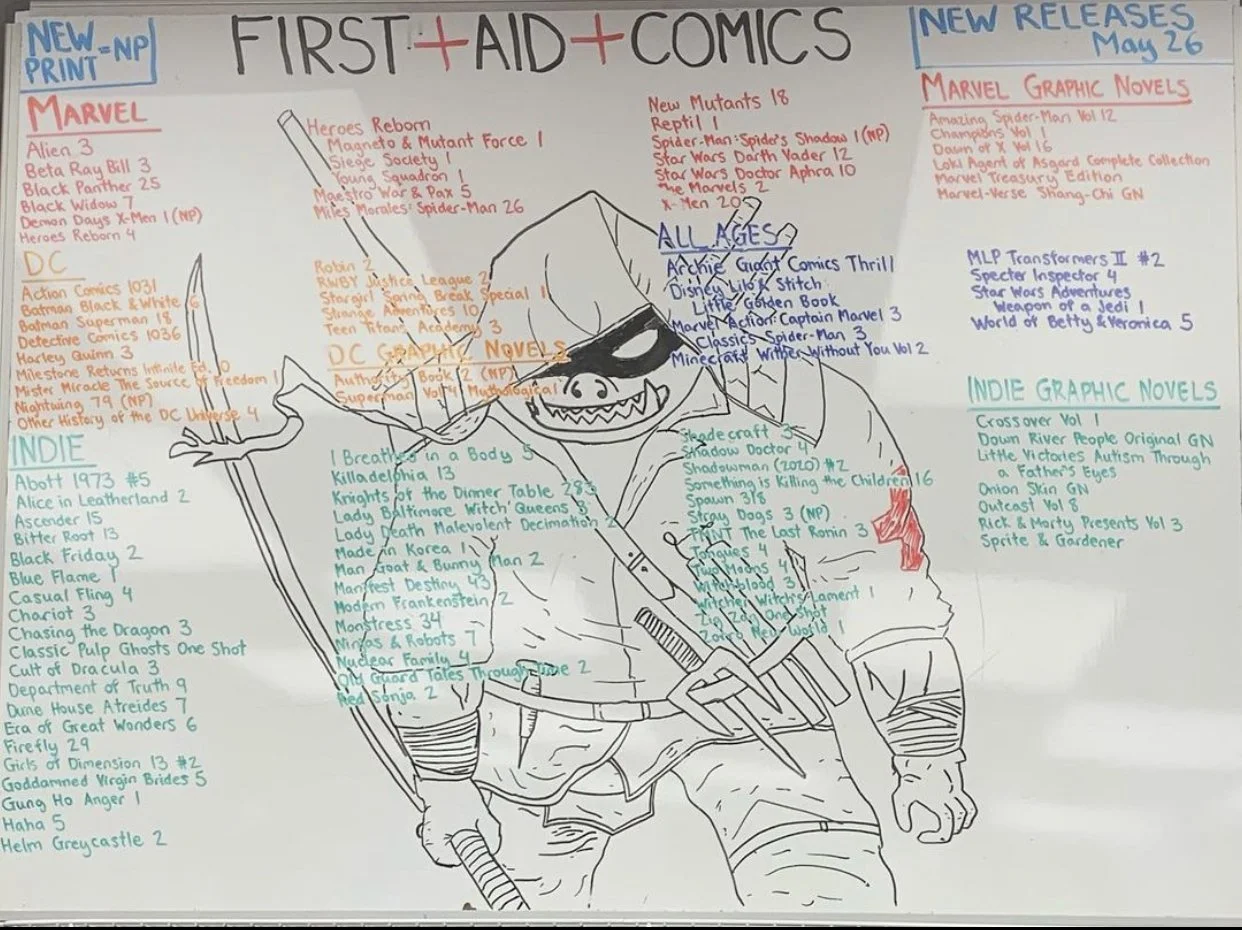 NEW PRINT =NP
FIRST+AID+COMICS
NEW RELEASES
May 26
MARVEL
Alien 3
Beta Ray Bill 3
Black Panther 25
Black Widow 7
Demon Days X-Men 1 (NP)
Heroes Reborn 4
Heroes Reborn
Magneto & Mutant Force 1
Siege Society 1
Young Squadron 1
Maestro War & Pax 5
Miles Morales: Spider-Man 26
New Mutants 18
Reptil 1
Spider-Man: Spider's Shadow 1 (NP)
Star Wars Darth Vader 12
Star Wars Doctor Aphra 10
The Marvels 2
X-Men 20
MARVEL GRAPHIC NOVELS
Amazing Spider-Man Vol 12
Champions Vol 1
Dawn of X Vol 16
Loki Agent of Asgard Complete Collection
Marvel Treasury Edition
Marvel-Verse Shang-Chi GN
DC
Action Comics 1031
Batman Black & White 6
Batman Superman 18
Detective Comics 1036
Harley Quinn 3
Milestone Returns Infinite Ed. 0
Mister Miracle The Source of Freedom 1
Nightwing 79 (NP)
Other History of the DC Universe 4
Robin 2
RWBY Justice League 2
Stargirl Spring Break Special 1
Strange Adventures 10
Teen Titans Academy 3
DC GRAPHIC NOVELS
Authority Book 2 (NP)
Superman Vol 4 Mythological
ALL AGES
Archie Giant Comics Thrill
Disney Lilo & Stitch
Little Golden Book
Marvel Action: Captain Marvel 3
Classics Spider-Man 3
Minecraft Wither Without You Vol 2
MLP Transformers II #2
Specter Inspector 4
Star Wars Adventures
Weapon of a Jedi 1
World of Betty & Veronica 5
INDIE
Abott 1973 #5
Alice in Leatherland 2
Ascender 15
Bitter Root 13
Black Friday 2
Blue Flame 1
Casual Fling 4
Chariot 3
Chasing the Dragon 3
Classic Pulp Ghosts One Shot
Cult of Dracula 3
Department of Truth 9
Dune House Atreides 7
Era of Great Wonders 6
Firefly 29
Girls of Dimension 13 #2
Goddamned Virgin Brides 5
Gung Ho Anger 1
Haha 5
Helm Greycastle 2
I Breathed in a Body 5
Killadelphia 13
Knights of the Dinner Table 283
Lady Baltimore Witch Queens 3
Lady Death Malevolent Decimation 2
Made in Korea 1
Man Goat & Bunny Man 2
Manifest Destiny 43
Modern Frankenstein 2
Monstress 34
Ninjas & Robots 7
Nuclear Family 4
Old Guard Tales Through Time 2
Red Sonja 2
Shadecraft 3
Shadow Doctor 4
Shadowman (2020) #2
Something is Killing the Children 16
Spawn 318
Stray Dogs 3 (NP)
TMNT The Last Ronin 3
Tongues 4
Two Moons 4
Witchblood 3
Witcher Witch's Lament 1
Zig Zag One Shot
Zorro New World 1
INDIE GRAPHIC NOVELS
Crossover Vol 1
Down River People Original GN
Little Victories Autism Through
a Father's Eyes
Onion Skin GN
Outcast Vol 8
Rick & Morty Presents Vol 3
Sprite & Gardener